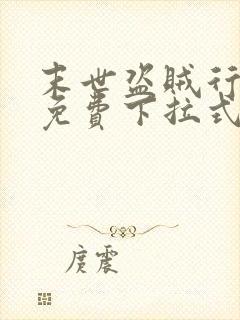 末世盗贼行
免费下拉式
庹震